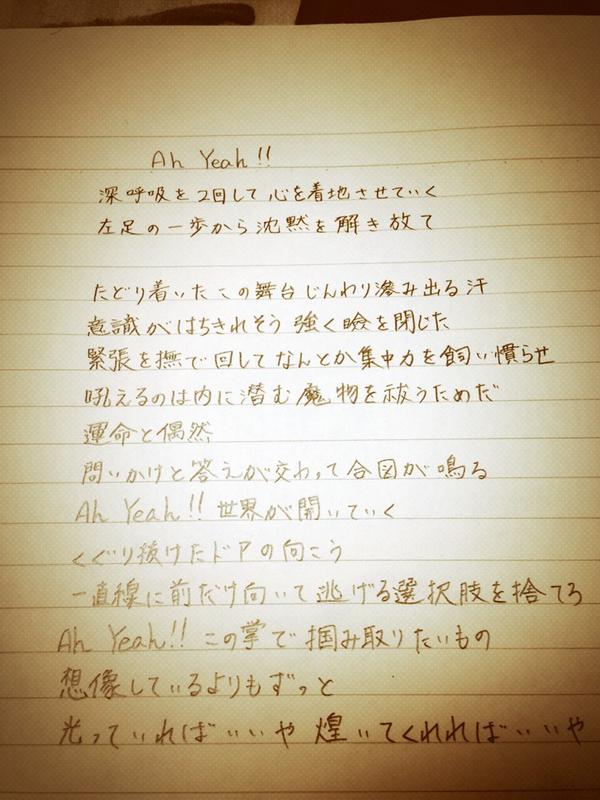 Ah Yeah!!
深呼吸を2回して 心を着地させていく
左足の一歩から 沈黙を解き放て
たどり着いた この舞台 じんわり滲み出る汗
意識がはちきれそう 強く瞼を閉じた
緊張を撫で回して なんとか集中力を飼い慣らせ
吼えるのは内に潜む魔物を祓うためだ
運命と偶然
問いかけと答えが交わって 合図が鳴る
Ah Yeah!! 世界が開いていく
くぐり抜けたドアの向こう
一直線に前だけ向いて 逃げる選択肢を捨てろ
Ah Yeah!! この掌で掴み取りたいもの
想像しているよりもずっと
光っていればいいや 煌いてくれればいいや